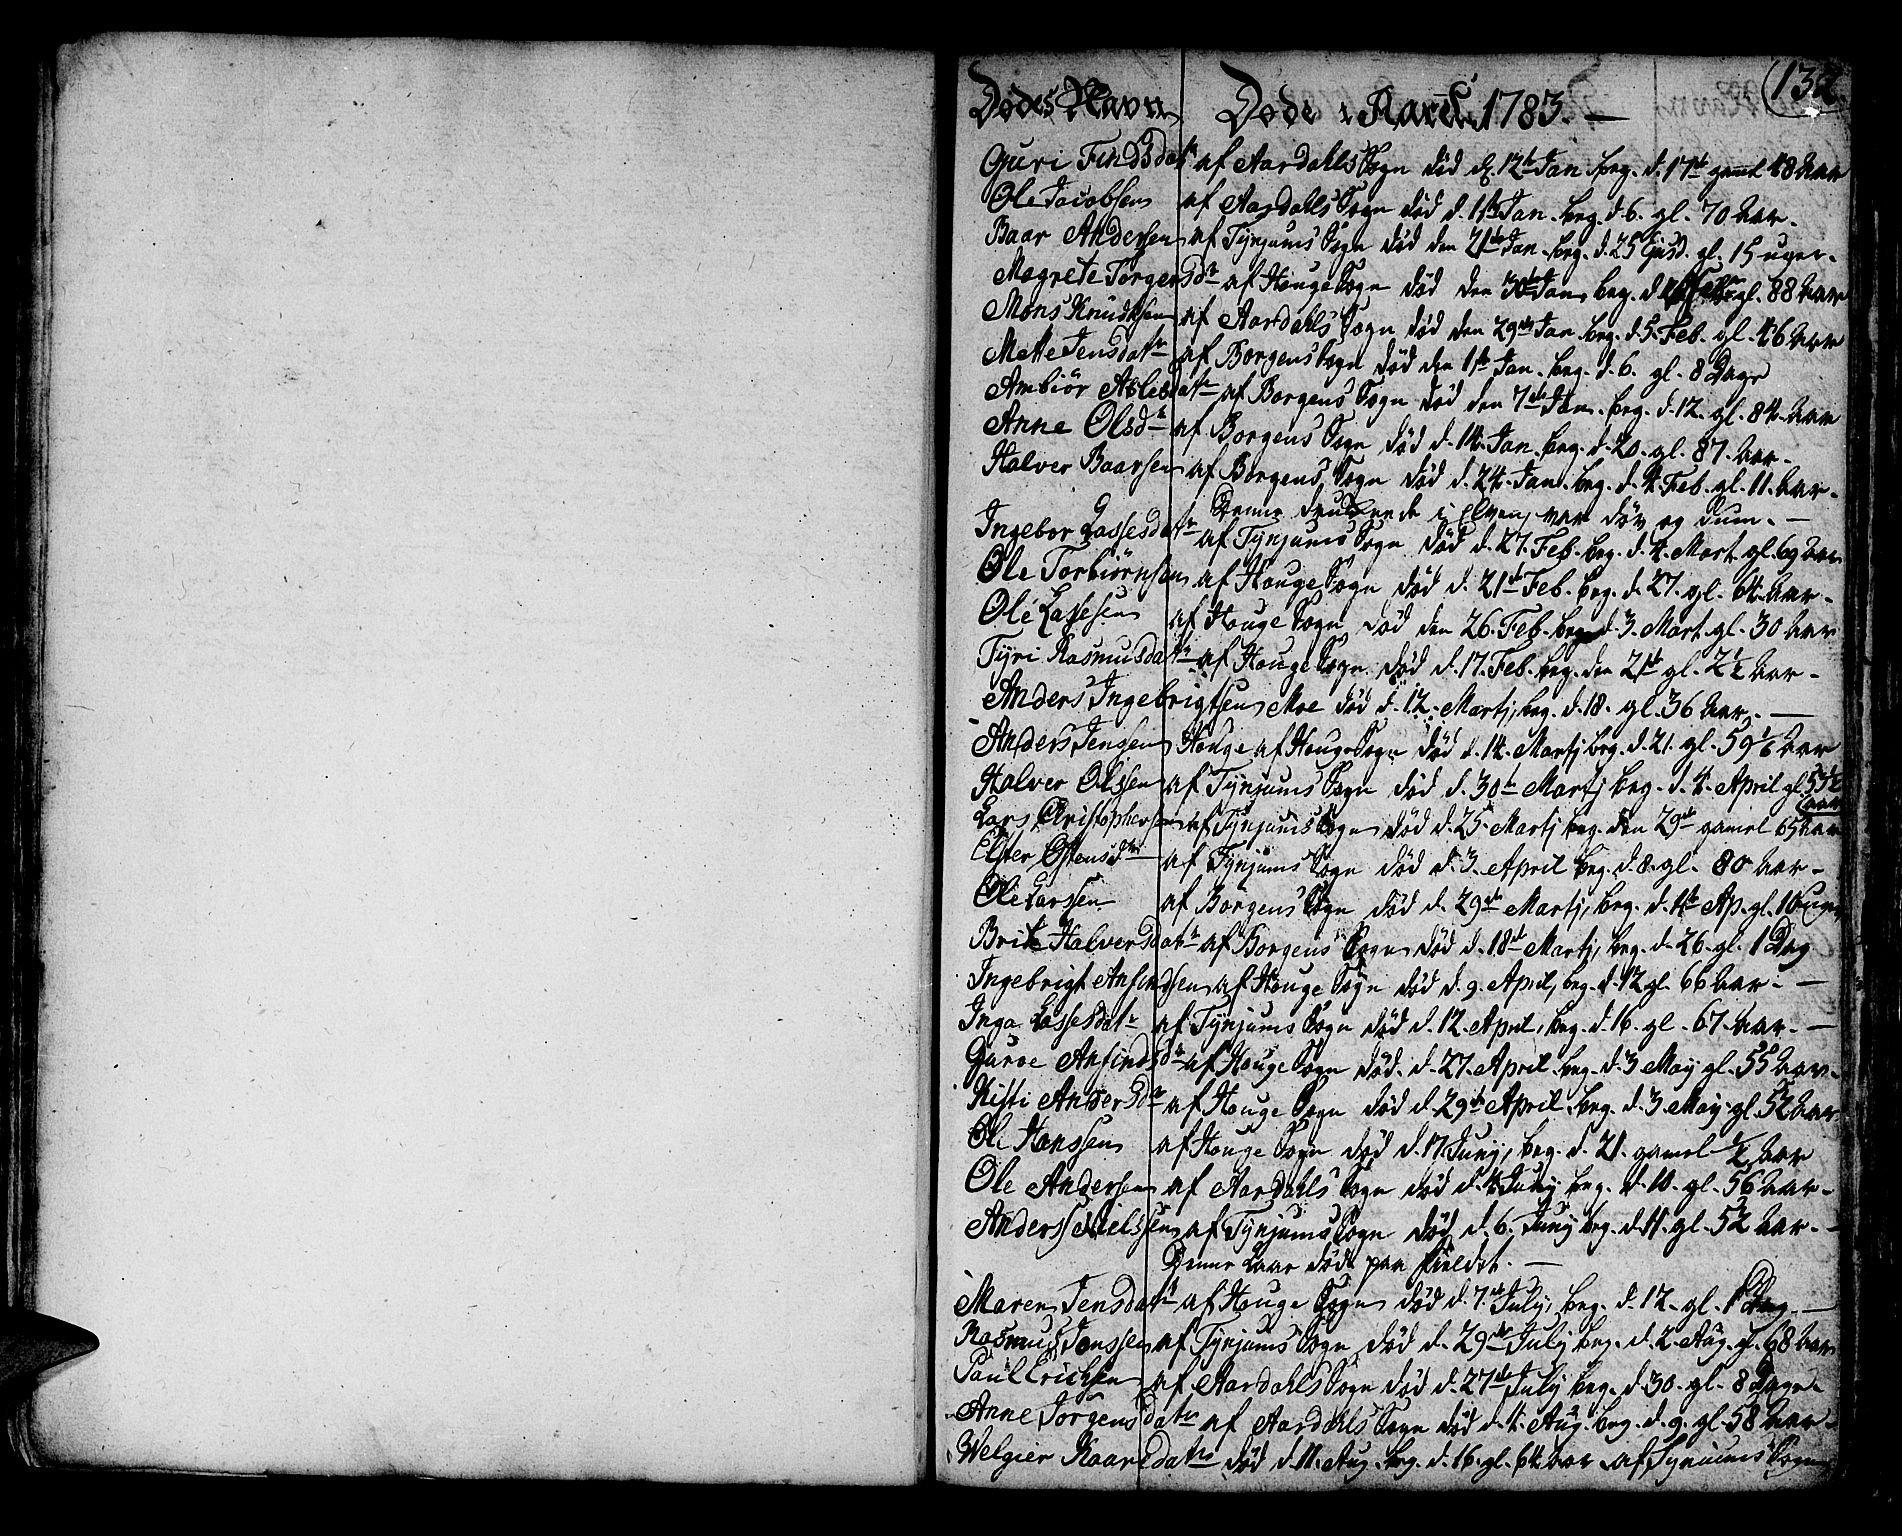 132.
Dødes Navn Døde i Aaret 1783. —
Guri Findsdatr af Aardahls Sogn død d. 12te Jan. beg. d. 17de gamel 48 Aar
Ole Jacobsen af Aardahls Sogn død d. 1ste Jan. beg. d. 6. gl. 70 Aar.
Baar Andersen af Tynjums Sogn død den 21de Jan. beg. d. 25 gl. 15 uger.
Magrete Torgersdr af Houge Sogn død den 30te Jan. beg. d. gl. 88 Aar
Mons Knudsen af Aardahls Sogn død den 29de Jan. beg. d. 5. Feb. gl. 46 Aar
Mette Jensdatr af Borgens Sogn død den 1ste Jan. beg. d. 6. gl. 8 Dage
Ambiør Aslesdatr af Borgens Sogn død den 7de Jan. beg. d. 12. gl. 84. Aar
Anne Olsdr af Borgens Sogn død d. 14. Jan. beg. d. 20. gl. 87. Aar.
Halver Baarsen af Borgens Sogn død d. 24. Jan. beg. d. 4. Feb. gl. 11. Aar.
Denne druknede i Elven, var døv og dum. —
Ingebor Lassesdatr af Tynjums Sogn død d. 27. Feb. beg. d. 4. Mart. gl. 69 Aar
Ole Torbiørnsen af Houge Sogn død d. 21de Feb. beg. d. 27. gl. 64. Aar.
Ole Lassesen af Houge Sogn død den 26. Feb. beg. d. 3. Mart. gl. 30 Aar
Tyri Rasmusdatr af Houge Sogn død d. 17. Feb. beg. den 21de gl. 2½ Aar.
Anders Ingebrigtsen Moe død d. 12. Martj, beg. d. 18. gl. 36 Aar. —
Anders Jensen Houge af Houge Sogn død d. 14. Martj beg. d. 21. gl. 59½ Aar
Halver Olssen af Tynjums Sogn død d. 30te Martj beg. d. 4. April gl. 53½ Aar
Lars Christophersen af Tynjums Sogn død d. 25. Martj beg. den 29de gamel 65 Aar
Elster Ostensdr af Tynjums Sogn død d. 3. April beg. d. 8. gl. 80 Aar.
Ole Larssen af Borgens Sogn død d. 29de Martj, beg. d. 4de Ap. gl. 10 uger
Brite Halversdatr af Borgens Sogn død d. 18de Martj, beg. d. 26. gl. 1 Dag
Ingebrigt Anfindsen af Houge Sogn død d. 9. April, beg. d. 12 gl. 66 Aar. —
Inga Lassesdatr af Tynjums Sogn død d. 12. April, beg. d. 16. gl. 67. Aar. —
Gurve Anfindsdr af Houge Sogn død. d. 27. April beg. d. 3 May gl. 55 Aar.
Kisti Andersdr af Houge Sogn død d. 29de April beg. d. 3. May. gl. 52 Aar
Ole Hanssen af Houge Sogn død d. 17 Juny, beg. d. 21. gamel ½ Aar
Ole Andersen af Aardahls Sogn død d. 4. Juny beg. d. 10. gl. 56 Aar.
Anders Nielssen af Tynjums Sogn død d. 6. Juny beg. d. 11. gl. 52 Aar. —
Denne Laae død paa Fieldet. —
Maren Jensdatr af Houge Sogn død d. 7de July, beg. d. 12. gl. 1 Dag. —
Rasmus Jenssen af Tynjums Sogn død d. 29de July beg. d. 2. Aug. gl. 68 Aar
Paul Erichsen af Aardahls Sogn død d. 27de July beg. d. 30. gl. 8 Dage.
Anne Jørgensdatr af Aardahls Sogn død d. 4. Aug. beg. d. 9. gl. 58 Aar.
Welgier Kaarsdatr død d. 11. Aug. beg. d. 16. gl. 64. Aar. af Tynjums Sogn